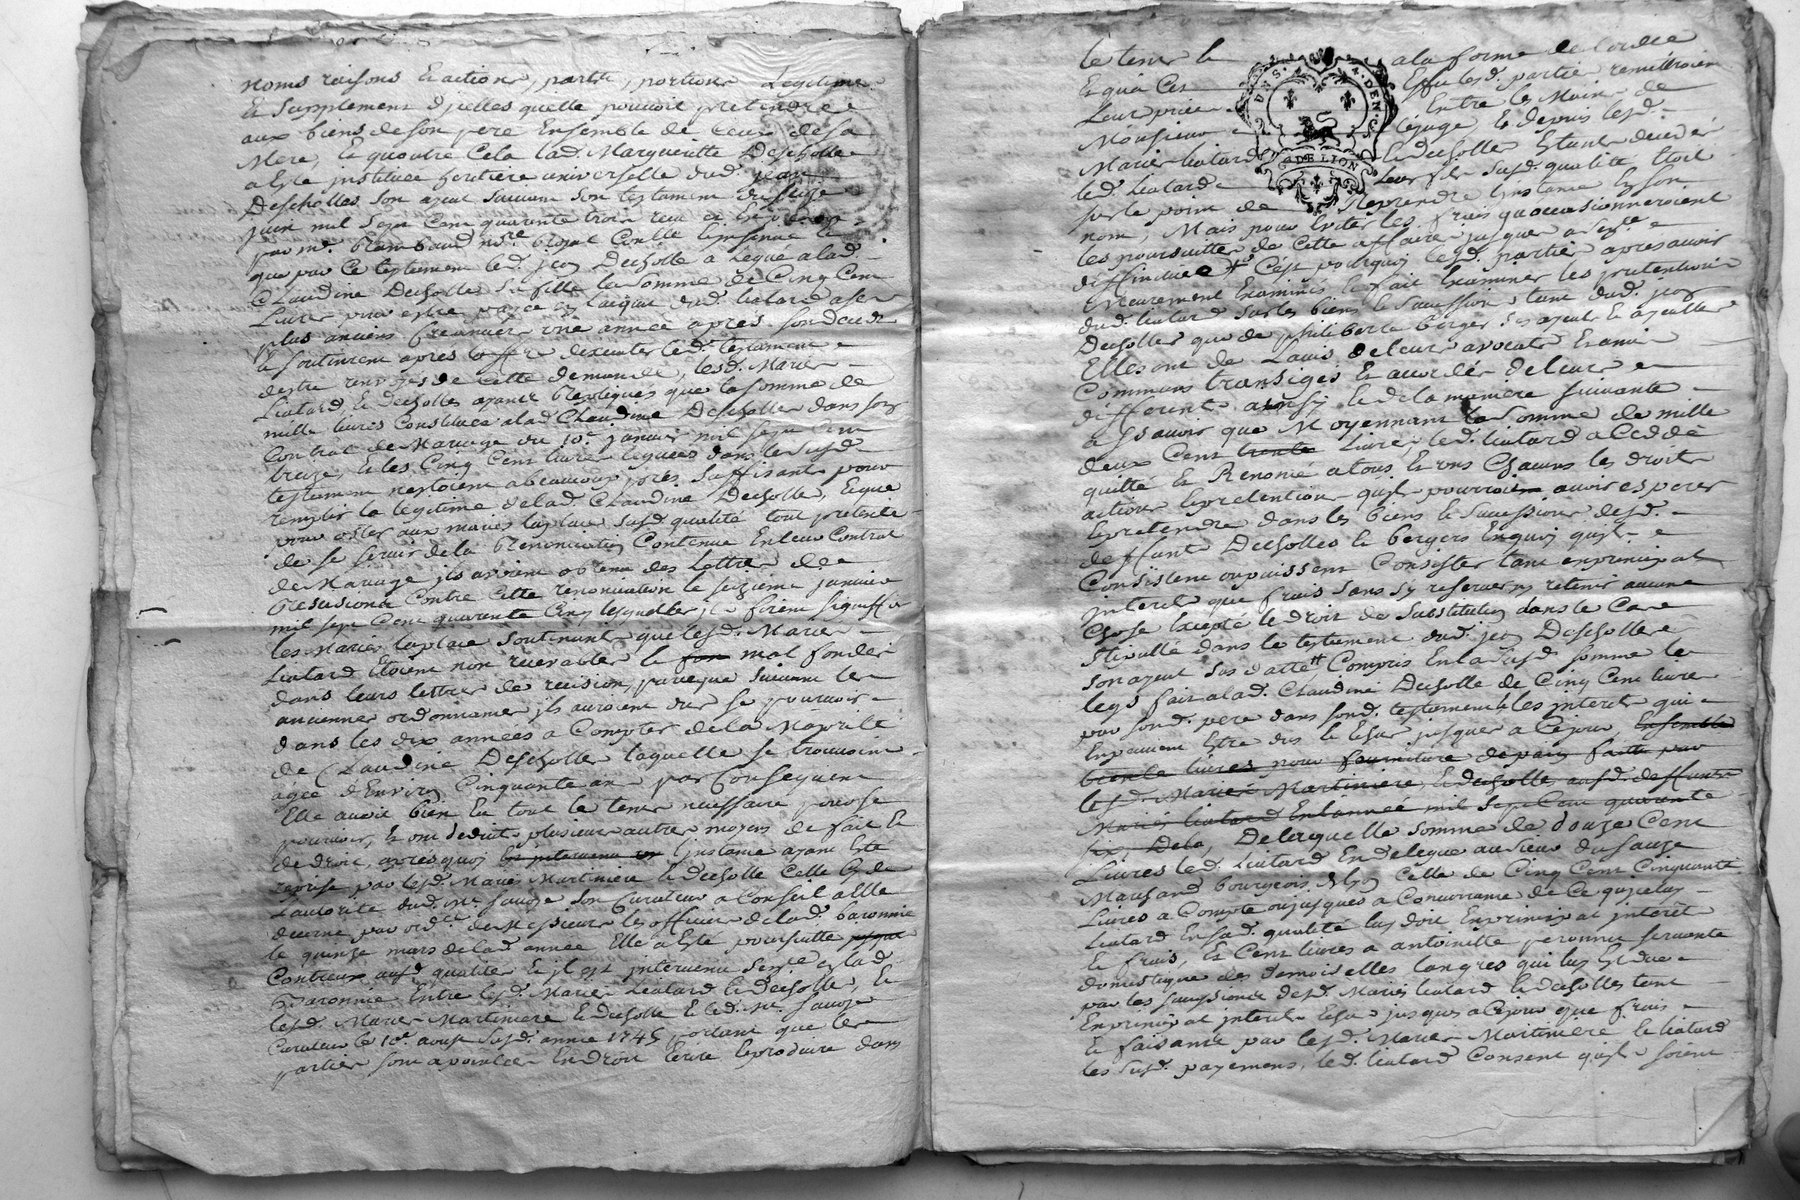 noms raisons et actions, parts, portions Legitime
et supplement d'jcelles quelle pouvoit pretendre
aux biens de son pere Ensemble de ceux de sa
Mere, et quoutre Cela lad. Margueritte Descholle
a Esté jnstituée heritiere universelle dud. jean
Descholles son ayeul suivant son testament du
juin mil sept Cent quarente trois receu
par me. not.re
que par Ce testement led. jean Descholle a Legué a lad.
Claudine Descholles sa fille la somme de Cinq Cent
Livres pour estre payée dud. Liatard
plus anciens Creancier une année apres son deces
et soutinrent apres loffre dexecuter led. testament
destre renvoyés de cette demande, lesd. Mariés
Liatard et Descholles ayant Repliqués que la somme de
mille livres Constituée a lad. Claudine Descholles dans son
Contrat de Mariage du 10e. janvier mil sept Cent
treize, et les Cinq Cent livres leguées dans le susd.
testament nestoient a beaucoup pres suffisant pour
remplir la legitime de lad. Claudine Descholle, et que
pour oster aux mariés laplace susd. qualité tout pretexte
de se servir de la Renonciation Contenue En leur Contrat
de Mariage jls avoient obtenu des Lettres de
Rescision Contre Cette renonciation le seizieme janvier
mil sept Cent quarente Cinq lesquelles jls firent signiffier
les Mariés laplace soutinrent que lesd. Mariés
Liatard Etoient non recevables et mal fondés
dans leurs lettres de recision, parceque suivant les
anciennes ordonnances jls auroient dus se pourvoir
dans les dix années a Compter de la Majorité
de Claudine Descholles laquelle se trouvoit
agée d'Environ Cinquante ans par Consequent
Elle avoit bien Eu tout le tems necessaire pour se
pourvoir, et ont deduits plusieurs autres moyens de fait et
de droit, apres quoy l'instance ayant Esté
reprise par lesd. Mariés Martiniere et Descholle Celle Cy de
Lautorité dud. Me. sauze son Curateur a Conseil a Elle
decerné par ord.ce de Messieurs les officiers de lad. baronnie
le quinze mars de lad. année Elle a Esté poursuitte
Contreux ausd. qualités et jl est jntervenu sen.ce en lad.
Baronnie Entre lesd. Mariés Liatard et Descholle, et
lesd. Mariés Martiniere et Descholle et led. Me. sauze
Curateur le 10e. aoust susd. année 1745, portant que les
parties sont apointées En droit Ecrire et produire dans
le tems et a la forme de l'ordce
Et qu'a Cet Effet lesd. parties remettroient
Leur Entre les Mains de
Monsieur le juge, et depuis lesd.
Mariés Liatard et Descholle Etant decedés
led. Liatard Leur fils susd. qualité Etoit
sur le point de Reprendre L'instance En son
nom, Mais pour Eviter les frais quoccasionneroient
les poursuittes de Cette affaire jusques a sen.ce
deffinitive Cest pourquoy lesd. parties apres avoir
meurement Examinés et fait Examiner les pretentions
dud. Liatard sur les biens et succession tant dud. jean
Descholles que de philiberte berger ses ayeul et ayeulle
Elles ont de Lavis de leurs avocats et amis
Communs transigés et accordés de leurs
differents ainsy et de la maniere suivante
a sçavoir que Moyennant la somme de mille
deux Cent trente Livres, led. Liatard a Ceddé
quitté et Renoncé a tous et uns Chacuns les droits
actions et pretentions quil pourroit avoir esperer
et pretendre dans les biens et succession desd.
deffunts Descholles et bergers En quoy quils
Consistent ou puissent Consister tant en principal
jnterets que frais sans sy reserver ny retenir aucune
Chose Excepté le droit de substitution dans le Cas
stipullé dans le testament dud. jean Descholle
son ayeul sus datté Compris En la susd. somme le
legs fait a lad. Claudine Descholle de Cinq Cent livres
par sond. pere dans sond. testament et les jnterets qui
En peuvent Estre dus et Echus jusques a Ce jour, Ensemble
trente livres pour fourniture de pain faite par
lesd. Mariés Martiniere, et Descholle ausd. deffunts
Mariés Liatard En l'année mil sept Cent quarente
six. De la, De laquelle somme de douze Cent
Livres led. Liatard En delegue au sieur Dusauze
Marchand bourgeois Celle de Cinq Cent Cinquante
Livres a Compte ou jusques a Concurrance de Ce quicelui
Liatard En sad. qualité luy doit En principal jnterêt
et frais, Et Cent livres a antoinette peronne servante
domestique des demoiselles langres qui luy Est due
par les successions desd. Mariés Liatard et Descholles tant
En principal jnterets Echus jusques a Ce jour que frais
et faisants par lesd. Mariés Martiniere et Liatard
les susd. payemens, led. Liatard Consent quils soient
G. DE LION